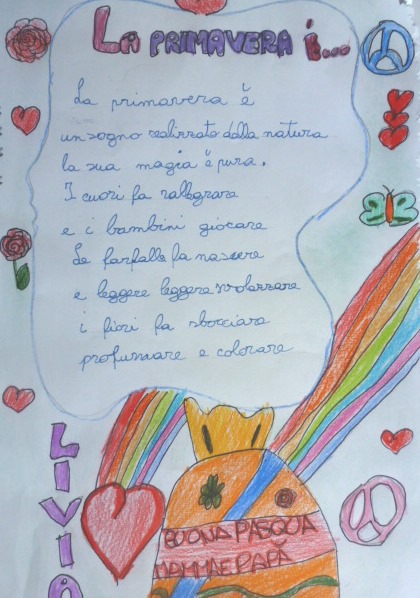 LA PRIMAVERA È...
La primavera è
un sogno realizzato dalla natura
la sua magia è pura.
I cuori fa rallegrare
e i bambini giocare
Le farfalle fa nascere
e leggere leggere svolazzare
i fiori fa sbocciare
profumare e colorare
LIVIA
BUONA PASQUA
MAMMA E PAPÀ